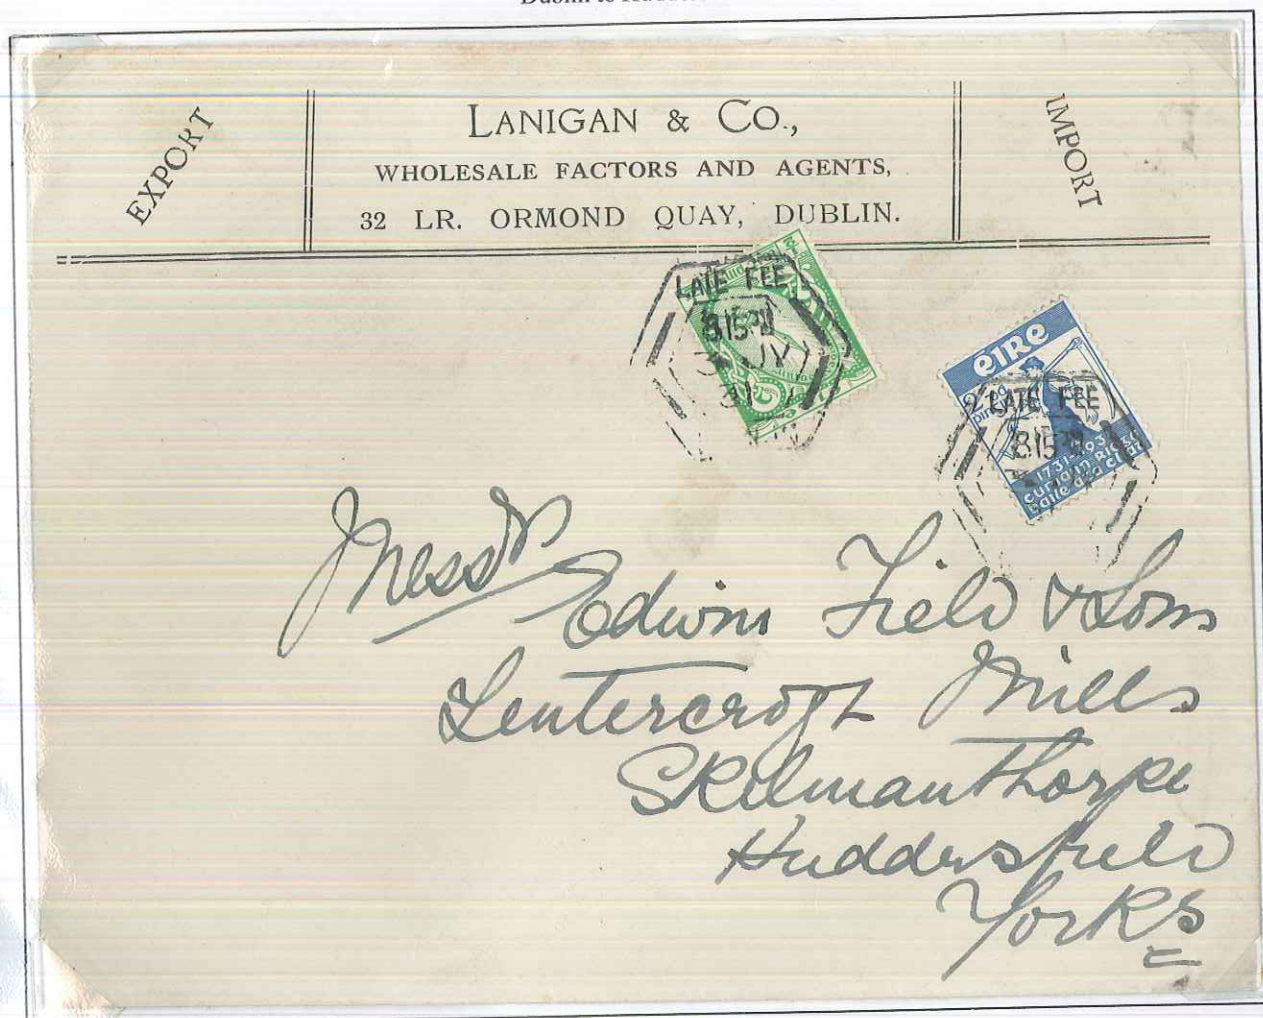 Dublin to
EXPORT
LANIGAN & CO.,
WHOLESALE FACTORS AND AGENTS,
32 LR. ORMOND QUAY, DUBLIN.
IMPORT
LATE FEE
815PM
31
éIRe
2
pingin
LATE FEE
815PM
1731-1931
Messrs
Edwin Field & Sons
Mills
Skelmanthorpe
Huddersfield
Yorks